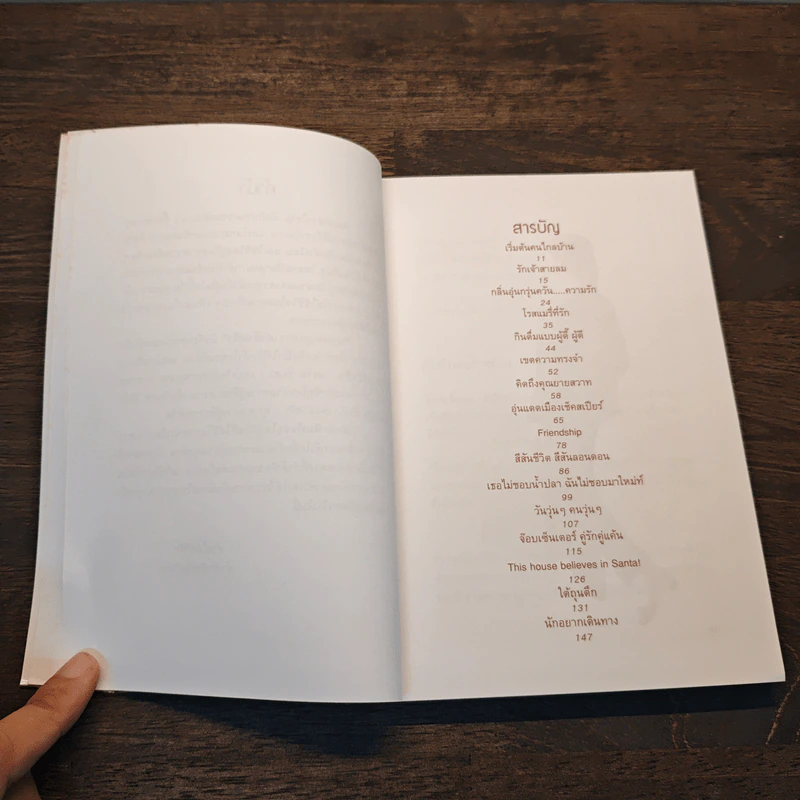 สารบัญ
เริ่มต้นคนไกลบ้าน
11
รักเจ้าสายลม
15
กลิ่นอุ่นกรุ่นควัน.....ความรัก
24
โรสแมรี่ที่รัก
35
กินดื่มแบบผู้ดี๊ ผู้ดี
44
เขตความทรงจำ
52
คิดถึงคุณยายสวาท
58
อุ่นแดดเมืองเช็คสเปียร์
65
Friendship
78
สีสันชีวิต สีสันลอนดอน
86
เธอไม่ชอบน้ำปลา ฉันไม่ชอบมาไหม่ท์
99
วันวุ่นๆ คนวุ่นๆ
107
จ๊อบเซ็นเตอร์ คู่รักคู่แค้น
115
This house believes in Santa!
126
ใต้ถุนตึก
131
นักอยากเดินทาง
147